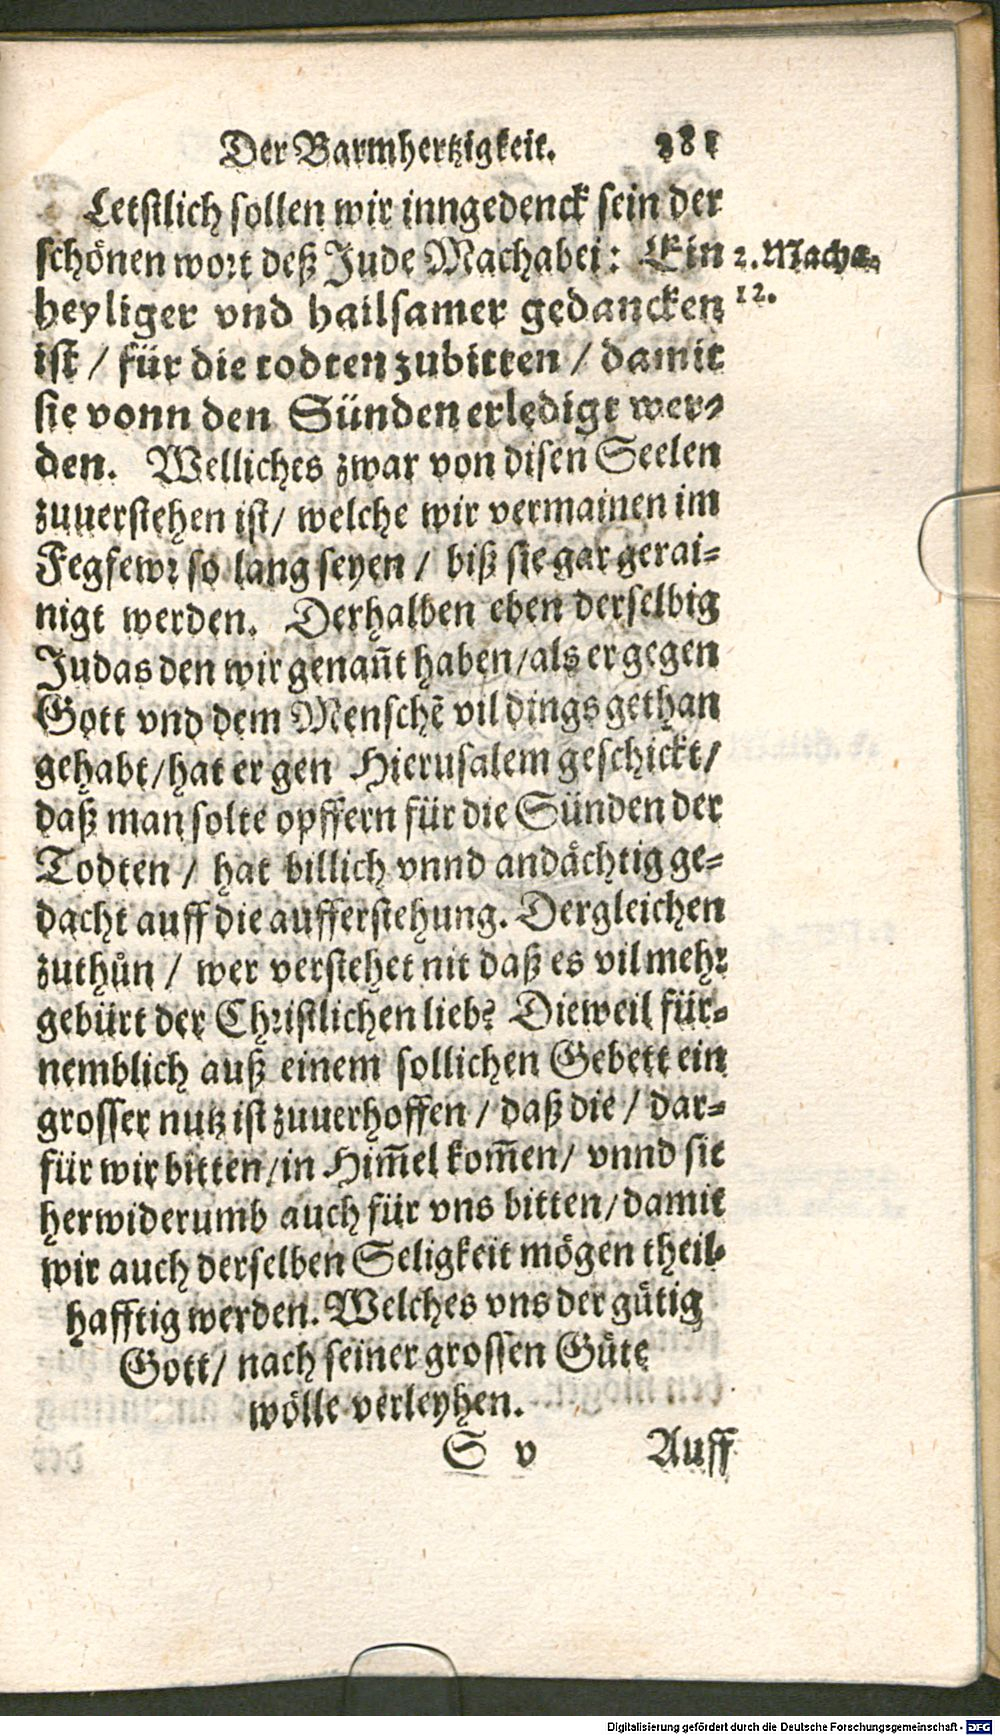 Der Barmhertzigkeit. 281
Letstlich sollen wir inngedenck sein der
schönen wort deß Jude Machabei: Ein
2. Macha.
12.
heyliger vnd hailsamer gedancken
ist / für die todten zubitten / damit
sie vonn den Sünden erledigt wer-
den. Welliches zwar von disen Seelen
zuuerstehen ist/ welche wir vermainen im
Fegfewr so lang seyen / biß sie gar gerai-
nigt werden. Derhalben eben derselbig
Judas den wir genañt haben/als er gegen
Gott vnd dem Menschẽ vil dings gethan
gehabt/hat er gen Hierusalem geschickt/
daß man solte opffern für die Sünden der
Todten / hat billich vnnd andächtig ge-
dacht auff die aufferstehung. Dergleichen
zuthůn / wer verstehet nit daß es vil mehr
gebürt der Christlichen lieb? Dieweil für-
nemblich auß einem sollichen Gebett ein
grosser nutz ist zuuerhoffen / daß die / dar-
für wir bitten/in Him̃el kom̃en/ vnnd sie
herwiderumb auch für vns bitten/damit
wir auch derselben Seligkeit mögen theil-
hafftig werden. Welches vns der gütig
Gott/ nach seiner grossen Güte
wölle verleyhen.
S v Auff
Digitalisierung gefördert durch die Deutsche Forschungsgemeinschaft - DFG